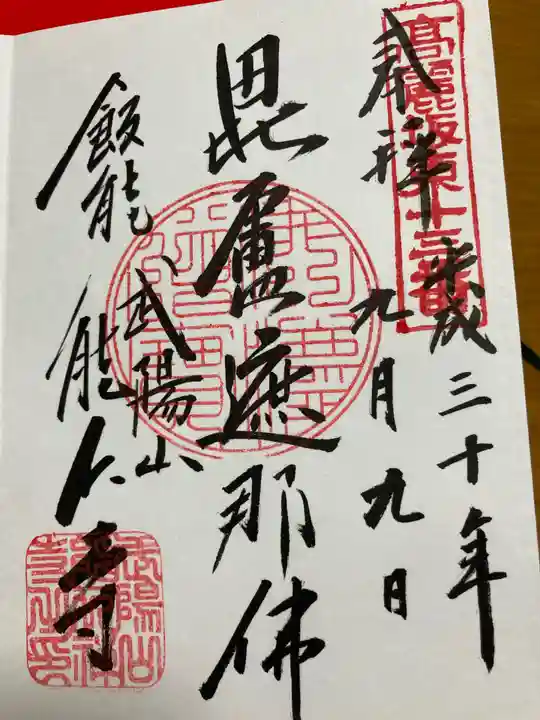 奉拝
高麗坂東三十三番
平成三十年
九月九日
毘盧遮那佛
武陽山
飯能 能仁寺